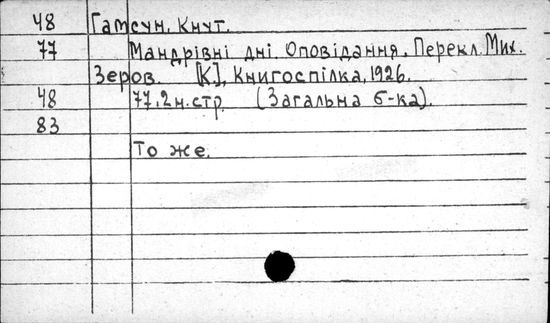 48 Гамсун, Кнут.
77 Мандрівні дні. Оповідання. Перекл. Мих.
Зеров. [К], Книгоспілка, 1926.
48 77, 2 н. стр. (Загальна б-ка).
83
То же.